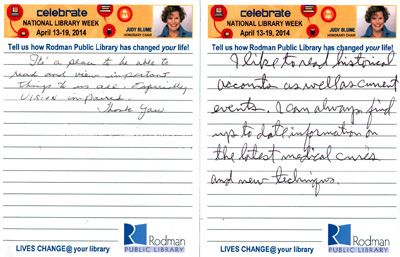 celebrate
NATIONAL LIBRARY WEEK
April 13-19, 2014
JUDY BLUME
HONORARY CHAIR
Tell us how Rodman Public Library has changed your life!
It's a place to be able to
read and view important
things to us all. Especially
VISION impaired.
Thank You
Rodman
PUBLIC LIBRARY
LIVES CHANGE@your library
celebrate
NATIONAL LIBRARY WEEK
April 13-19, 2014
JUDY BLUME
HONORARY CHAIR
Tell us how Rodman Public Library has changed your life!
I like to read historical
accounts as well as current
events. I can always find
up to date information on
the latest medical cures
and new techniques.
Rodman
PUBLIC LIBRARY
LIVES CHANGE@your library